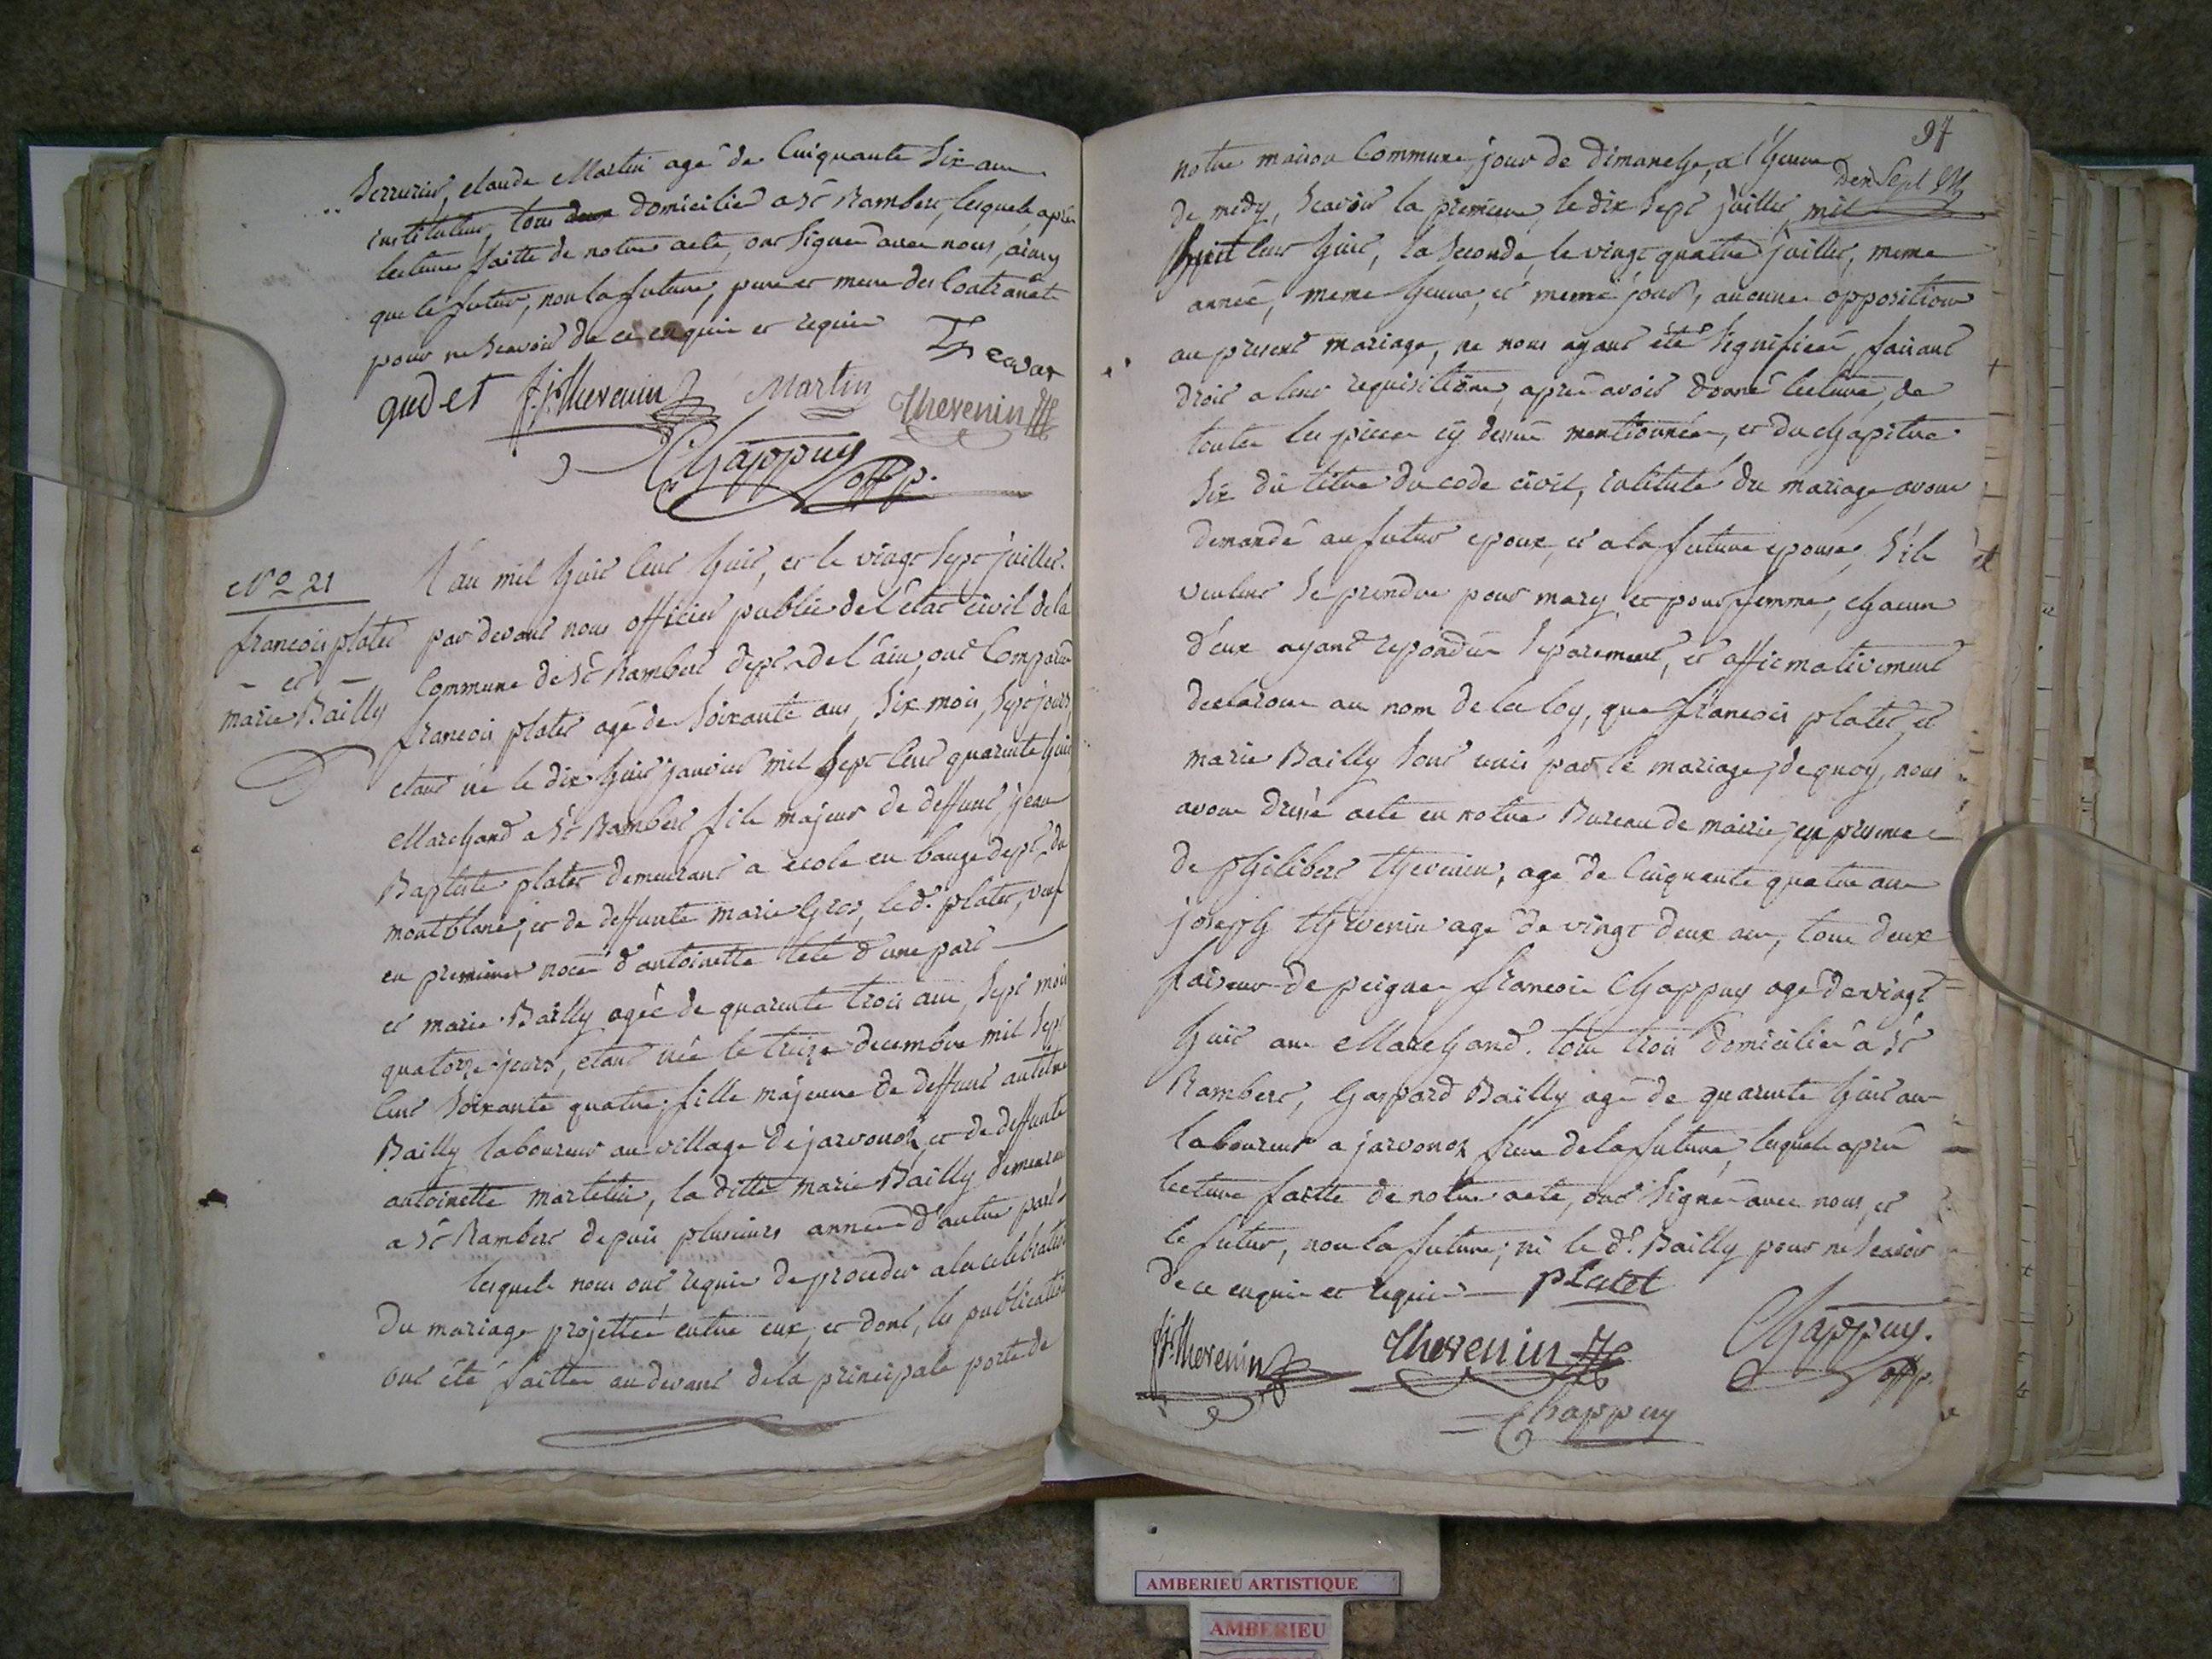 serrurier, claude Martin agé de Cinquante Six ans
instituteur, tous deux domicilié a St Rambert, lesquels après
lecture faitte de notre acte, ont signé avec nous, ainsy
que le futur, non la future, pere et mere des Contranéts
pour ne scavoir de ce enquis et requis
gudet f.j. Thevenin Martin Thevenin
Chappuy offp.
N° 21
francois platet
- et -
marie Bailly
l'an mil huit Cent huit, et le vingt sept juillet
par devant nous officier public de l'état civil de la
Commune de St Rambert dept de l'ain, ont Comparu
francois platet agé de soixante ans, six mois, sept jours,
etant né le dix huit janvier mil sept Cent quarante huit
Marchand a St Rambert fils majeur de deffunt jean
Baptiste platet demeurant a ecole en bauge dept du
montblanc, et de deffunte marie Gros, led. platet, veuf
en premiere noce d'antoinette tete d'une part
et marie Bailly agée de quarente trois ans, sept mois
quatorze jours, etant née le treize decembre mil sept
Cent soixante quatre, fille majeure de deffunt antelme
Bailly laboureur au village de jarvonoz, et de deffunte
antoinette martelin, la ditte marie Bailly demeurant
a St Rambert depuis plusieurs année d'autre part
lesquels nous ont requis de proceder a la celebration
du mariage projetté entre eux, et dont, les publications
ont été faitte au devant de la principale porte de
97
notre maison Commune, jour de dimanche, a l'heure
de midy, scavoir la premiere, le dix sept juillet mil
huit Cent huit, la seconde, le vingt quatre juillet, meme
année, meme heure, et meme jour, aucune opposition
au present mariage, ne nous ayant été signifiée, faisant
droit a leur requisitions, après avoir donné lecture, de
toutes les pieces cy dessus mentionnées, et du chapitre
six du titre du code civil, intitulé du mariage avons
demandé au futur epoux, et a la future epouse, s'ils
veulent se prendre pour mary et pour femme, chacun
d'eux ayant repondu separement, et affirmativement
declarons au nom de la loy, que francois platet et
marie Bailly sont unis par le mariage, de quoy, nous
avons dressé acte en notre Bureau de mairie, en presence
de philibert thevenin, agé de Cinquante quatre ans
joseph thevenin agé de vingt deux ans, tous deux
faiseur de peignes francois Chappuy agé de vingt
huit ans Marchand. tous trois domicilié a St
Rambert, Gaspard Bailly agé de quarente huit ans
laboureur a jarvonoz frere de la future, lesquels après
lecture faitte de notre acte, ont signé avec nous, et
le futur, non la future, ni le d. Bailly pour ne scavoir
de ce enquis et requis platet
f.j. Thevenin Thevenin Chappuy.
offp.
Chappuy
AMBERIEU ARTISTIQUE
AMBERIEU